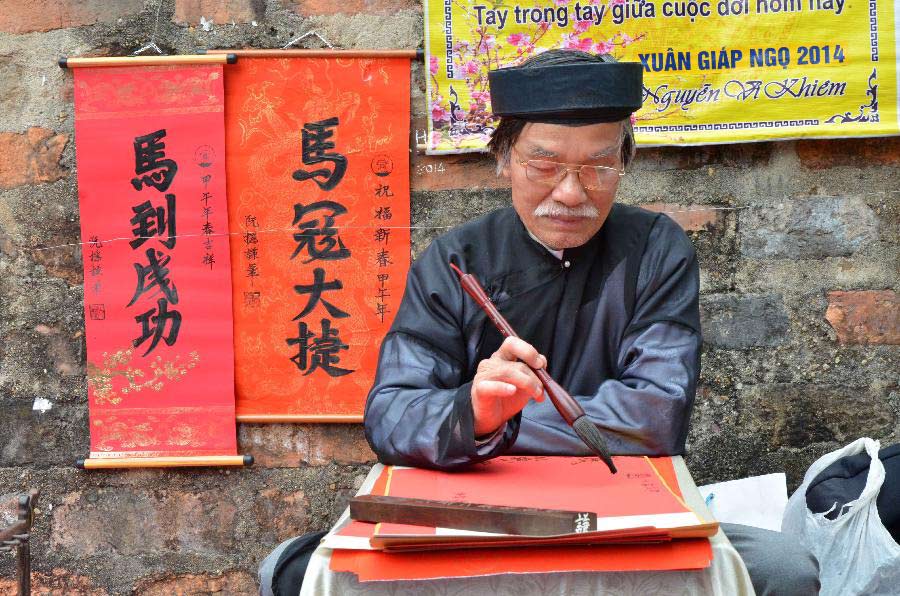 Tay trong tay giữa cuộc đời hôm nay
XUÂN GIÁP NGỌ 2014
Nguyễn Vi Khiêm
甲午年春吉祥
馬到成功
祝福新春甲午年
馬冠大捷
2014